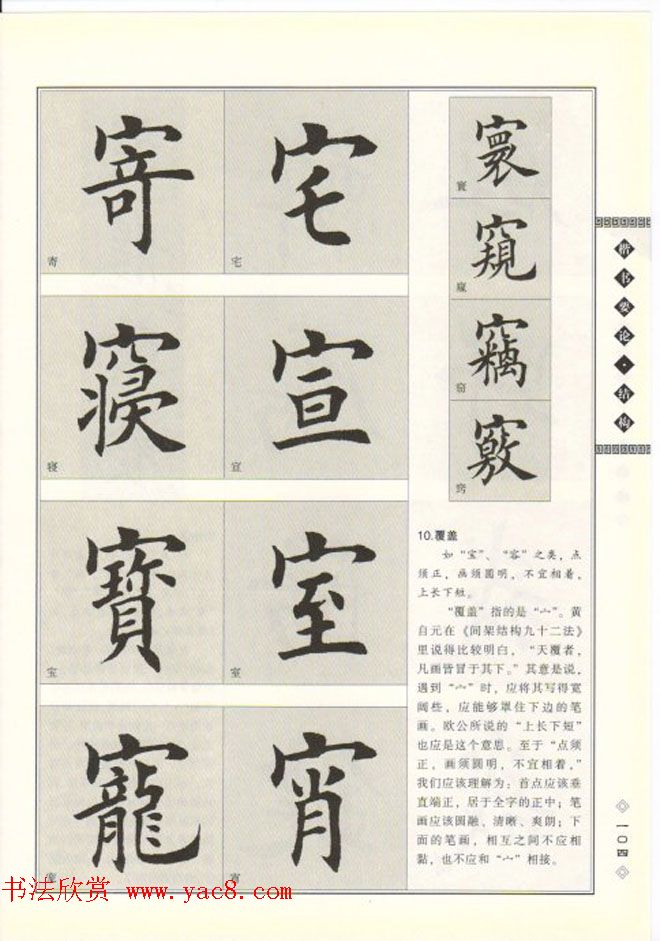 寄
宅
寄
宅
寝
宣
寝
宣
寶
室
宝
室
寵
宵
寰
寰
窺
窥
竊
窃
竅
窍
10.覆盖
如“宝”、“容”之类，点
须正，画须圆明，不宜相着，
上长下短。
“覆盖”指的是“宀”。黄
自元在《间架结构九十二法》
里说得比较明白，“天覆者，
凡画皆冒于其下。”其意是说，
遇到“宀”时，应将其写得宽
阔些，应能够罩住下边的笔
画。欧公所说的“上长下短”
也应是这个意思。至于“点须
正，画须圆明，不宜相着，”
我们应该理解为：首点应该垂
直端正，居于全字的正中；笔
画应该圆融、清晰、爽朗；下
面的笔画，相互之间不应相
黏，也不应和“宀”相接。
楷书要论·结构
一〇四
书法欣赏 www.yac8.com